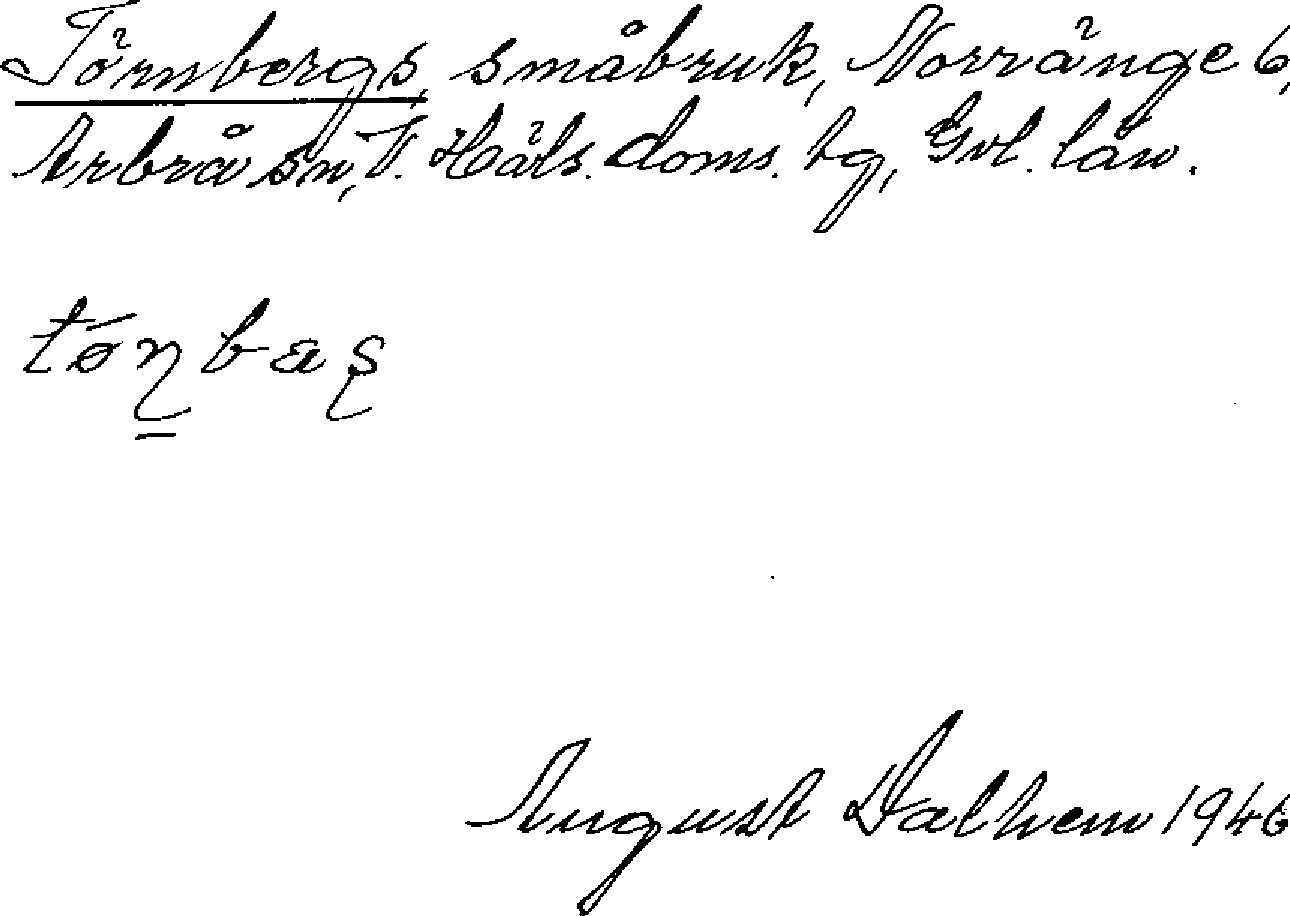 Törnbergs, småbruk, Norränge 6,
Arbrå sn, V. Häls. doms. tg, Gvl. län.
August Dalhem 1946